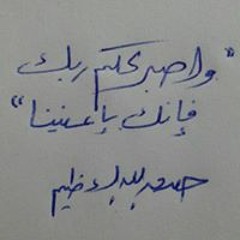 "واصبر لحكم ربك
فإنك بأعيننا"
صدق الله العظيم